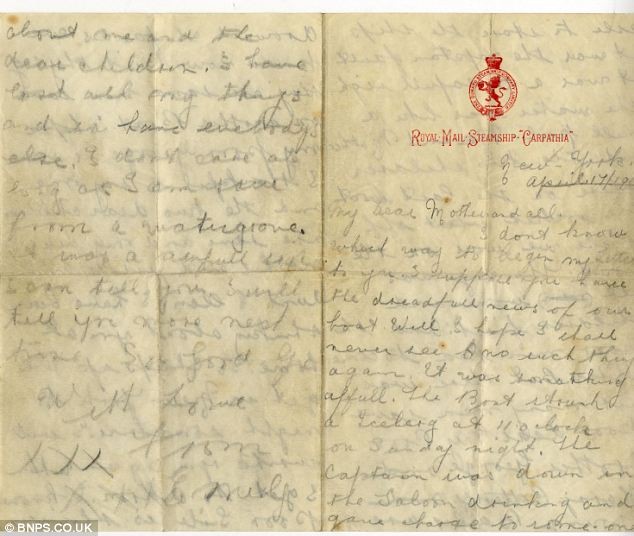 ROYAL-MAIL-STEAMSHIP-"CARPATHIA"
New York
April 17/19
My dear Mother and all.
I dont know
what way to begin my letter
to you I suppose you have
the dreadfull news of our
boat Well I hope I shall
never see no such thing
again. It was something
affull. The Boat struck
a Iceberg at 11 oclock
on Sunday night. The
Captain was down in
the Saloon drinking and
gave charge to some one
about me and the
dear children. I have
lost all my things
and so have everybody
else, I dont care as
long as I am save
from a watergrave.
It was a awfull site
I can tell you. I will
tell you more next
time So Good by
With love
from
XXX
Emily
© BNPS.CO.UK